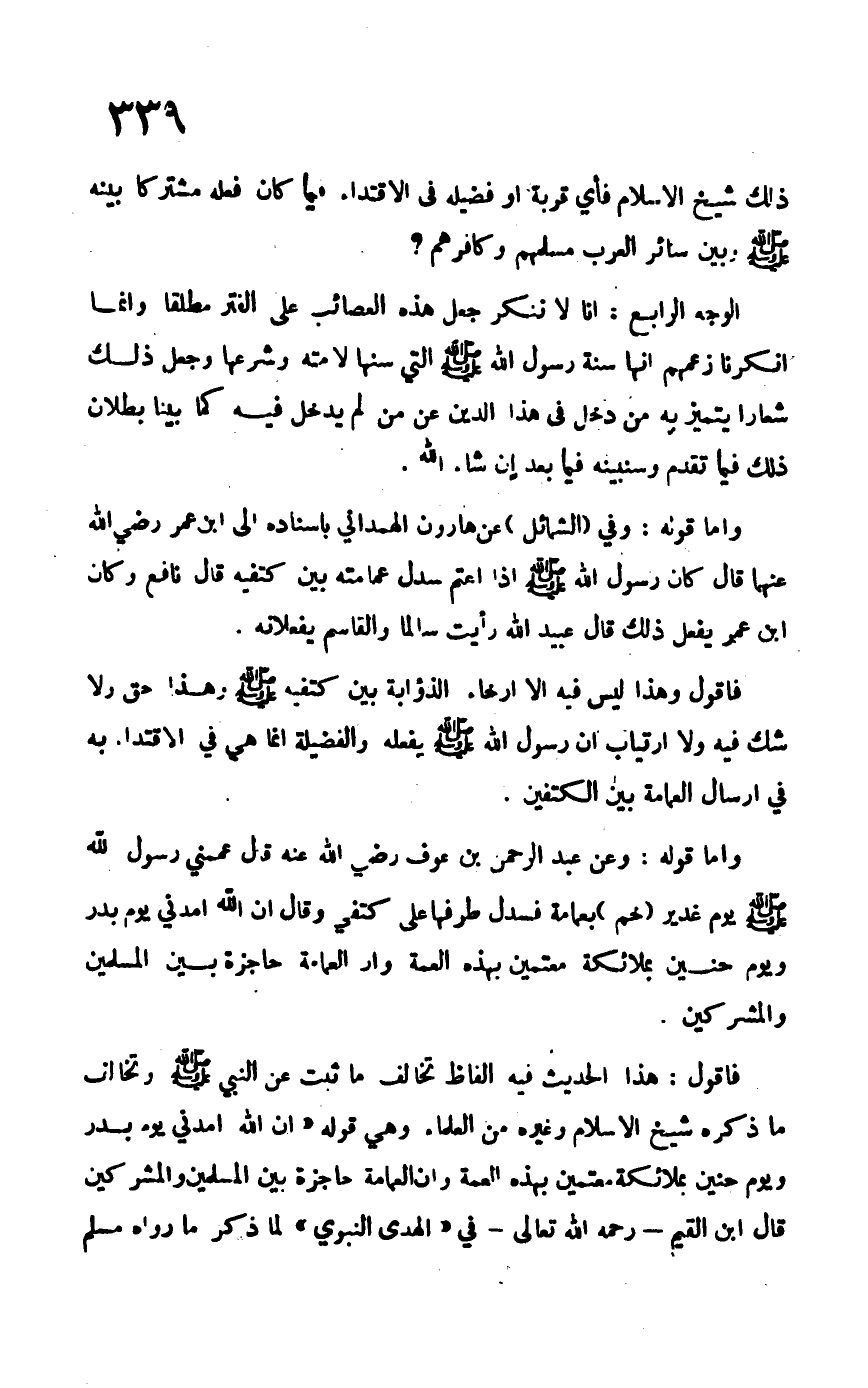 ٣٣٩
ذلك شيخ الاسلام فأي قربة او فضيله فى الاقتداء فيما كان فعله مشتركا بينه
ﷺ وبين سائر العرب مسلمهم وكافرهم ؟
الوجه الرابع : انا لا ننكر جعل هذه العصائب على الغتر مطلقا وانما
انكرنا زعمهم انها سنة رسول الله ﷺ التي سنها لامته وشرعها وجعل ذلك
شعارا يتميز به من دخل فى هذا الدين عن من لم يدخل فيه كما بينا بطلان
ذلك فيما تقدم وسنبينه فيما بعد إن شاء الله .
واما قوله : وفي (الشمائل) عن هارون الهمداني باسناده الى ابن عمر رضي الله
عنهما قال كان رسول الله ﷺ اذا اعتم سدل عمامته بين كتفيه قال نافع وكان
ابن عمر يفعل ذلك قال عبيد الله رأيت سالما والقاسم يفعلانه .
فاقول وهذا ليس فيه الا ارخاء الذؤابة بين كتفيه ﷺ وهذا حق ولا
شك فيه ولا ارتياب ان رسول الله ﷺ يفعله والفضيلة انما هي في الاقتداء به
في ارسال العمامة بين الكتفين .
واما قوله : وعن عبد الرحمن بن عوف رضي الله عنه قال عممني رسول الله
ﷺ يوم غدير (خم) بعمامة فسدل طرفها على كتفي وقال ان الله امدني يوم بدر
ويوم حنين بملائكة معتمين بهذه العمة وان العمامة حاجزة بين المسلمين
والمشركين .
فاقول : هذا الحديث فيه الفاظ تخالف ما ثبت عن النبي ﷺ وتخالف
ما ذكره شيخ الاسلام وغيره من العلماء وهي قوله « ان الله امدني يوم بدر
ويوم حنين بملائكة معتمين بهذه العمة وان العمامة حاجزة بين المسلمين والمشركين
قال ابن القيم — رحمه الله تعالى — في « الهدى النبوي » لما ذكر ما رواه مسلم